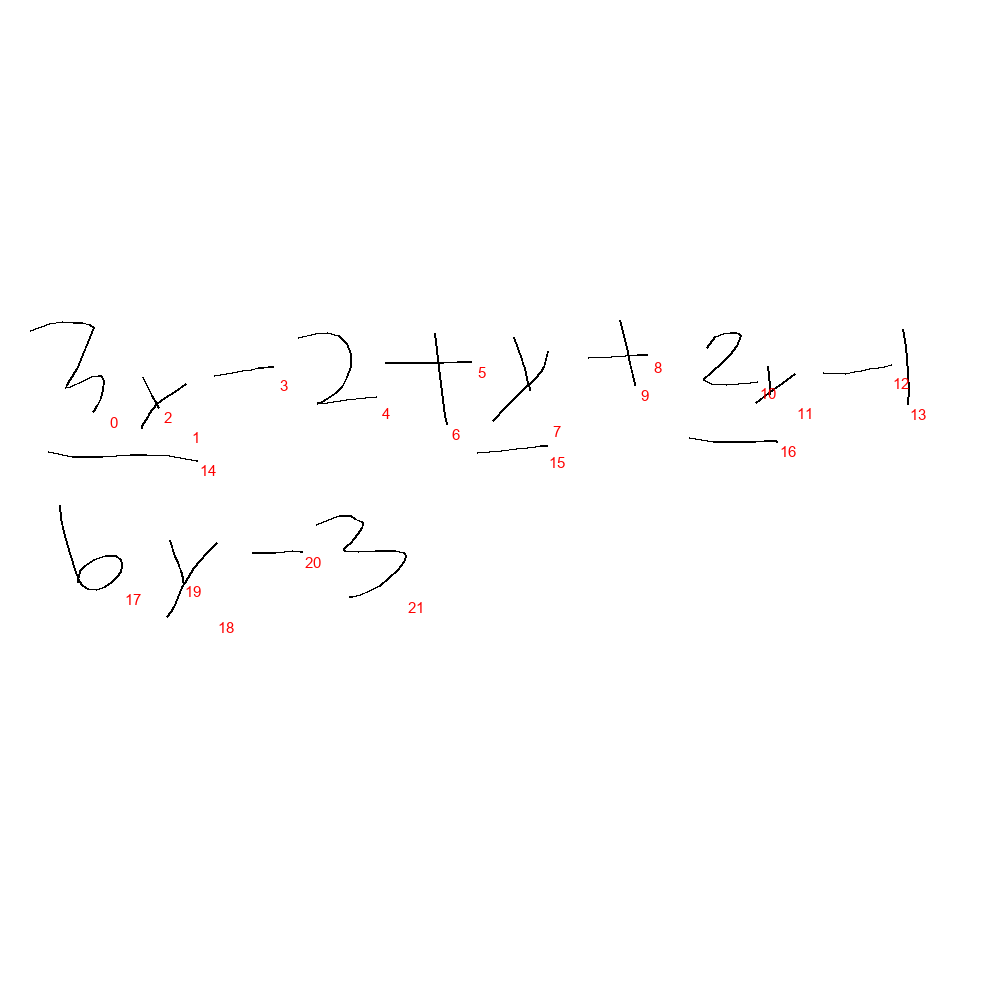 3y - 2 + y + 2y - 1
6y - 3
0 2 1 3 4 5 6 7 8 9 10 11 12 13
14 15 16
17 19 18 20 21